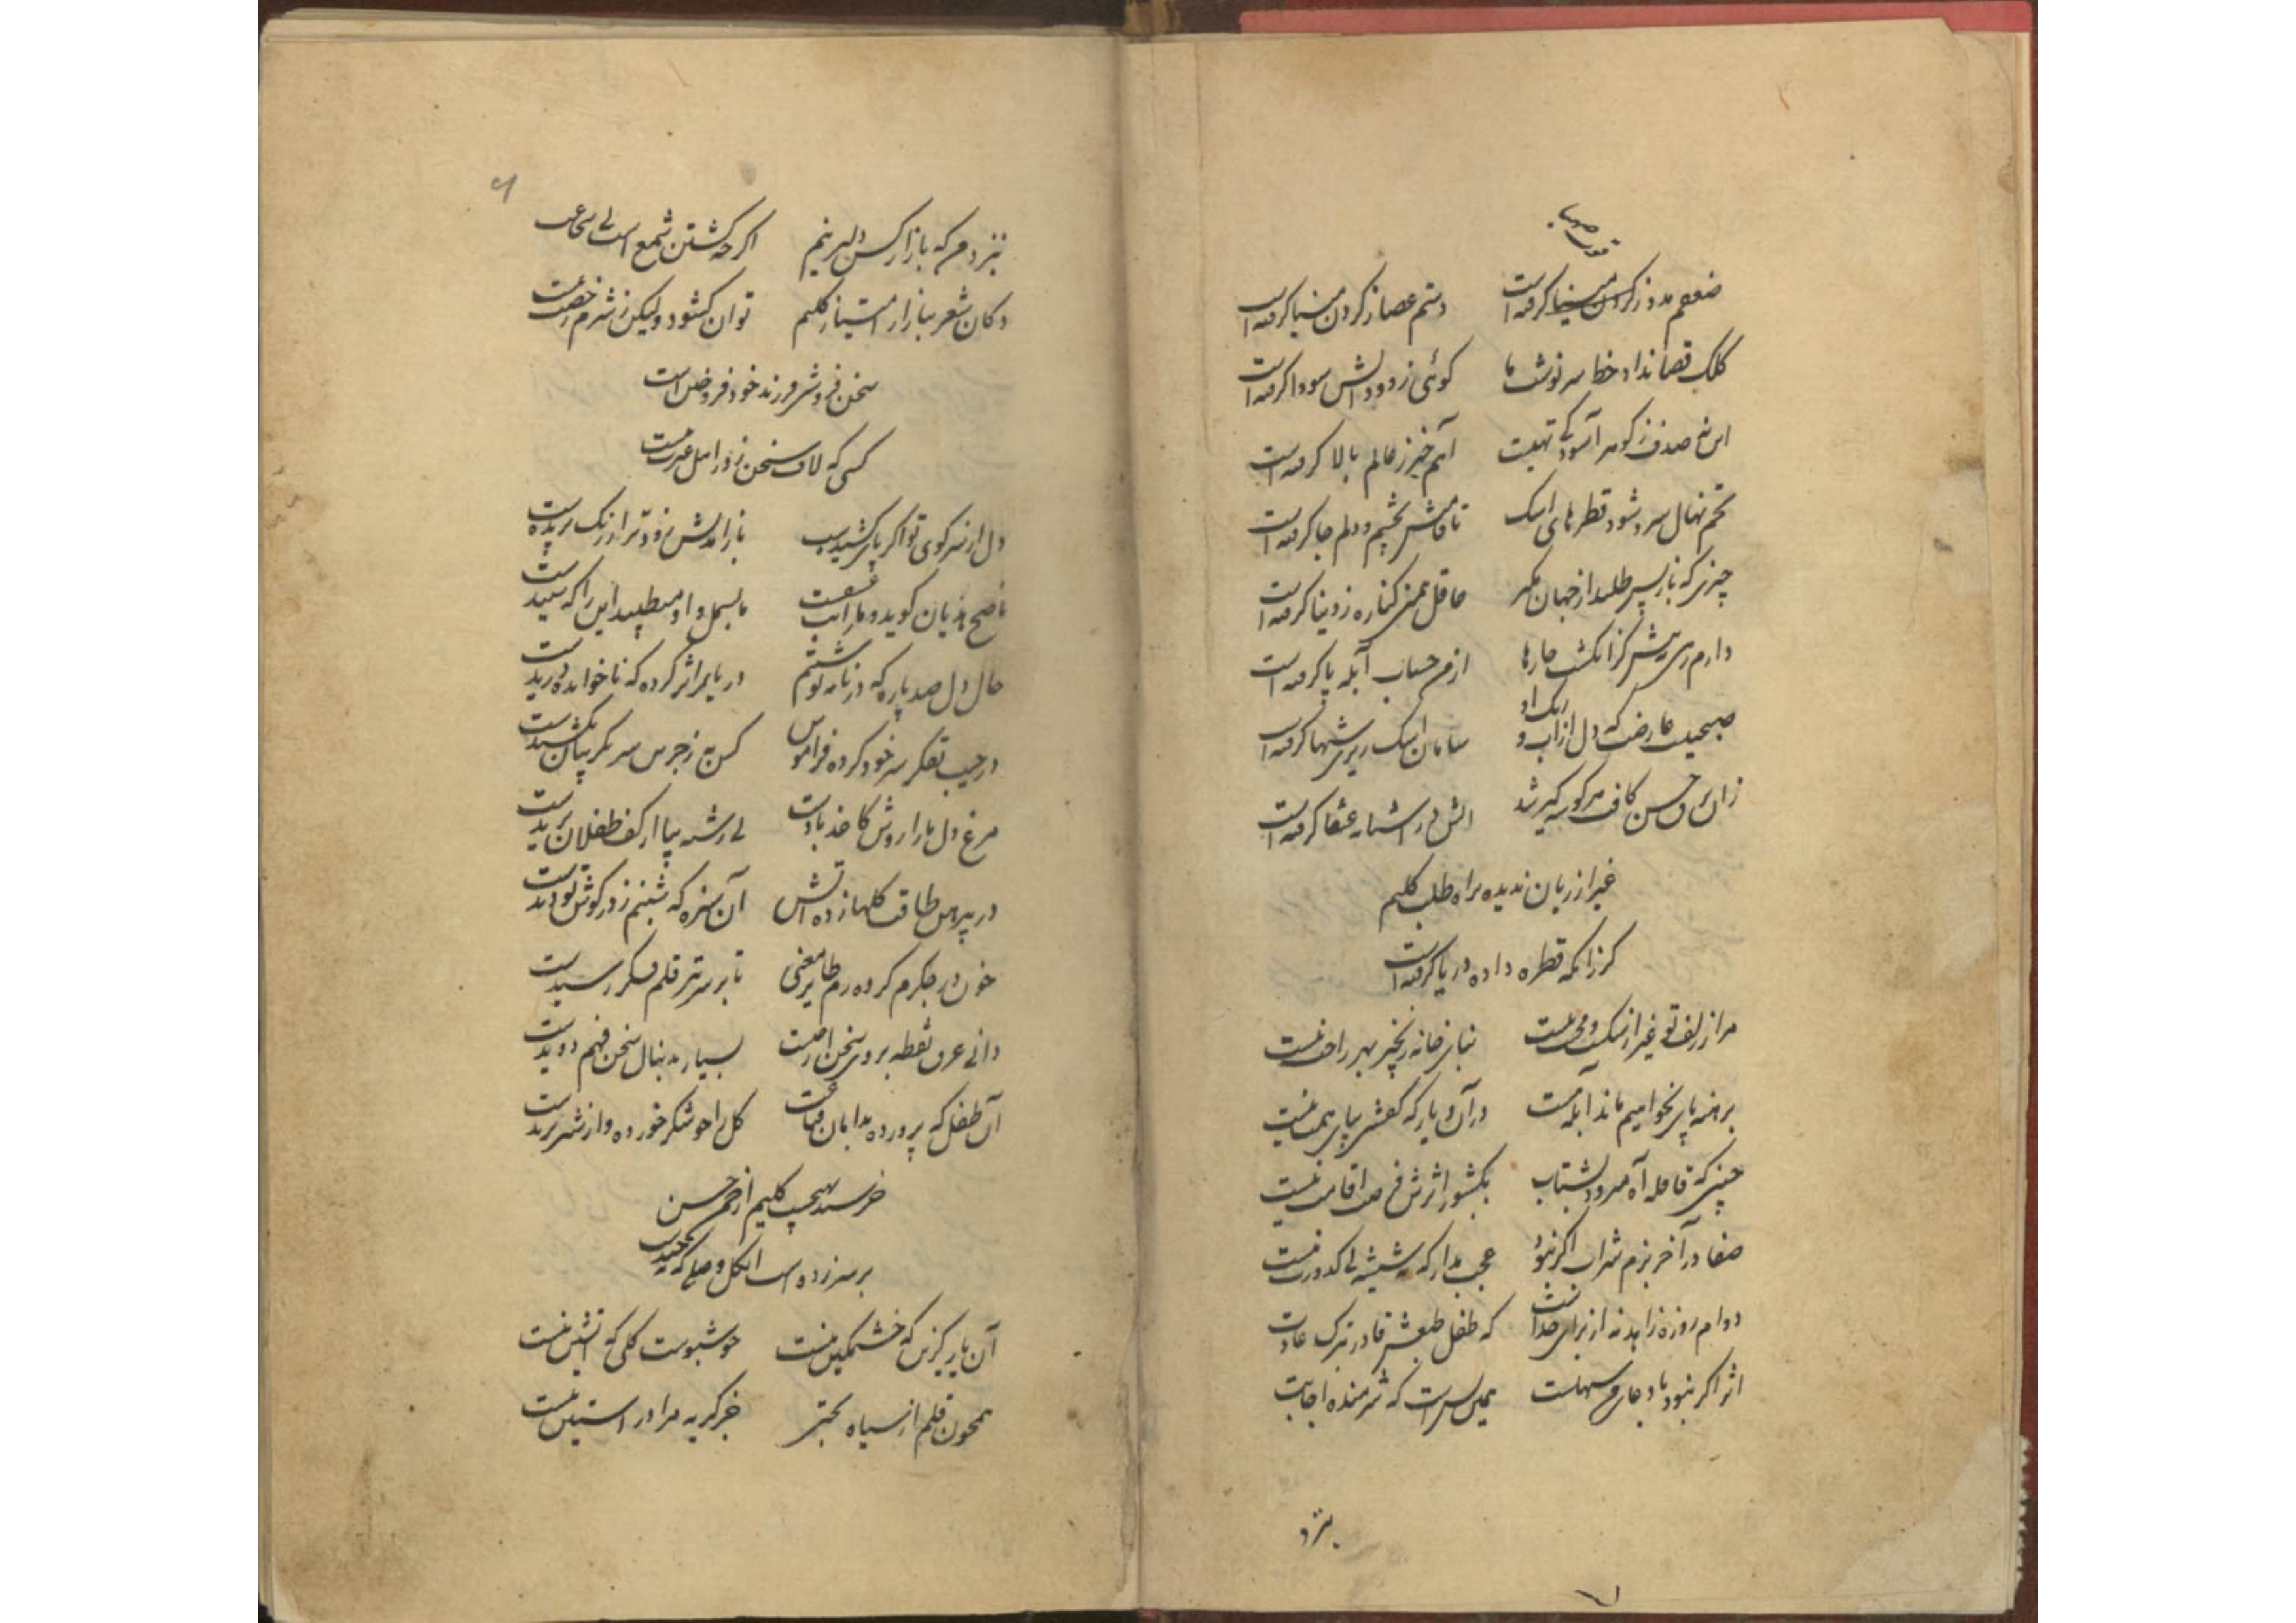 ضعفم مدد ز کردن مینا گرفته است دستم عصا ز گردن مینا گرفته است
کلک قضا نداد خطا سرنوشت ما گوئی ز دود آتش سودا گرفته است
این نه صدف ز گوهر آسودگی تهیست آهم خبر ز عالم بالا گرفته است
تخم نهال سرو شود قطرهای اشک تا قامتش بچشم و دلم جا گرفته است
چیزی که باز پس طلبد از جهان مگیر عاقل همین کناره ز دنیا گرفته است
دارم رهی به پیش کز انگشت خارها از من حساب آبله پا گرفته است
صبحیست عارضت که دل از آب و رنگ او سامان اشک ریزی شبها گرفته است
زان برق حسن کافت هر گوشه گیر شد آتش در آشیانه عنقا گرفته است
غیر از زیان ندیده براه طلب کلیم
کر ز آنکه قطره داده دریا گرفته است
مرا ز زلف تو غیر از شکست نیست بنای خانه زنجیر بهر راحت نیست
برهنه پای نخواهیم ماند آبله هست در آن دیار که کفشی بپای همت نیست
چنین که قافله آه میرود بشتاب بکشور اثرش فرصت اقامت نیست
صفا در آخر بزم شراب اگر نبود عجب مدار که ته شیشه بی کدورت نیست
دوام روزه زاهد نه از برای خداست که طفل طبعش قادر بترک عادت نیست
اثر اگر نبود با دعای ما سهلست همین بس است که شرمنده اجابت نیست
بنزد
بنزد من که بازار کس دلیر نیم اگر چه کشتن شمع است بی شجاعت نیست
دکان شعر ببازار امتیاز کلیم توان گشود ولیکن ز شرم رخصت نیست
سخن فروشی فرزند خود فروختن است
کسی که لاف سخن زد ز اهل غیرت نیست
دل از سر کوی تو اگر پای کشیدست باز آمدنش زودتر از رنگ پریدست
ناصح هذیان گوید و ما را تب عشقست ما بسمل و او میطپد این را که شنیدست
حال دل صد پاره که در نامه نوشتم در یار اثر کرده که ناخوانده دریدست
در جیب تفکر سر خود کرده فراموش کس به ز جرس سر بگریبان نکشیدست
مرغ دل ما را روش کاغذ بادست بی رشته بپا از کف طفلان نپریدست
در پیرهن طاقت گلها زده آتش آن سبزه که شبنم زده گوش تو دیدست
خون در جگرم کرده رم طایر معنی تا بر سر تیر قلم فکر رسیدست
دانی عرق نقطه بروی سخن از چیست بسیار بدنبال سخن فهم دویدست
آن طفل که پرورده بدامان قناعت گل را چو شکر خورده و از شیر بریدست
خرسند بهیچیم کلیم از چمن حسن
بر سر زده است آن گل وصلی که نچیدست
آن یار گزین که خشمگین نیست خوشبوست گلی که آتشین نیست
همچون قلم از سیاه بختی جز گریه مرا در آستین نیست